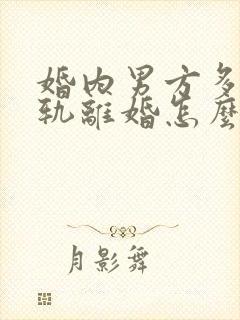 婚内男方多
轨离婚怎麼
月影舞